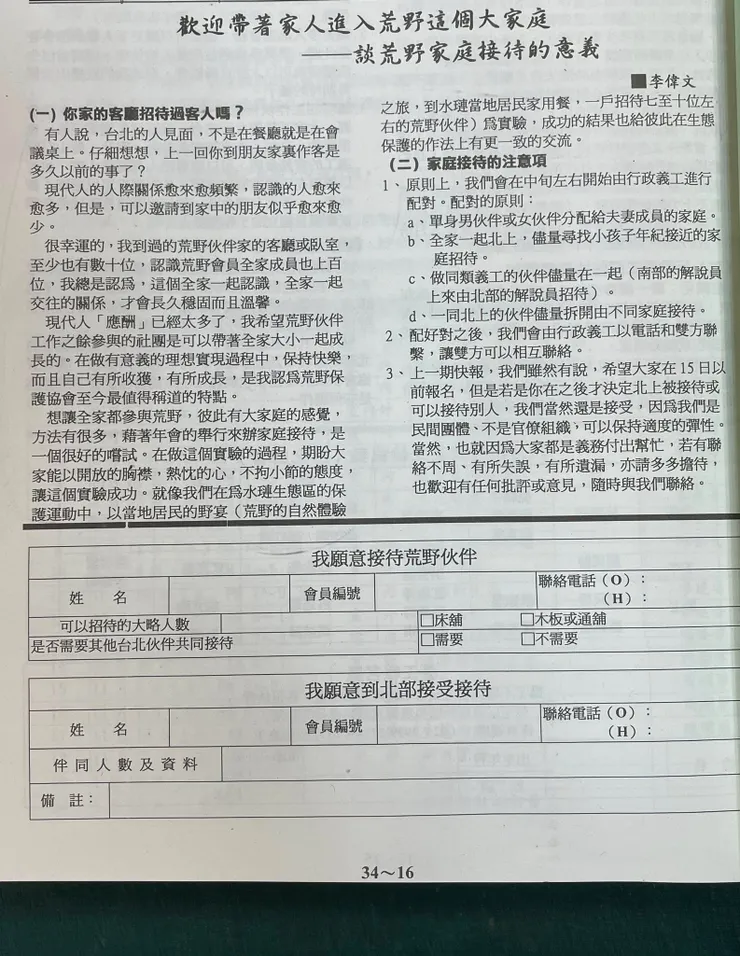 歡迎帶著家人進入荒野這個大家庭
——談荒野家庭接待的意義
■李偉文
(一) 你家的客廳招待過客人嗎？
有人說，台北的人見面，不是在餐廳就是在會
議桌上。仔細想想，上一回你到朋友家裏作客是
多久以前的事了？
現代人的人際關係愈來愈頻繁，認識的人愈來
愈多，但是，可以邀請到家中的朋友似乎愈來愈
少。
很幸運的，我到過的荒野伙伴家的客廳或臥室，
至少也有數十位，認識荒野會員全家成員也上百
位，我總是認爲，這個全家一起認識，全家一起
交往的關係，才會長久穩固而且溫馨。
現代人「應酬」已經太多了，我希望荒野伙伴
工作之餘參與的社團是可以帶著全家大小一起成
長的。在做有意義的理想實現過程中，保持快樂，
而且自己有所收獲，有所成長，是我認爲荒野保
護協會至今最值得稱道的特點。
想讓全家都參與荒野，彼此有大家庭的感覺，
方法有很多，藉著年會的舉行來辦家庭接待，是
一個很好的嚐試。在做這個實驗的過程，期盼大
家能以開放的胸襟，熱忱的心，不拘小節的態度，
讓這個實驗成功。就像我們在爲水璉生態區的保
護運動中，以當地居民的野宴（荒野的自然體驗
之旅，到水璉當地居民家用餐，一戶招待七至十位左
右的荒野伙伴）爲實驗，成功的結果也給彼此在生態
保護的作法上有更一致的交流。
(二) 家庭接待的注意項
1、原則上，我們會在中旬左右開始由行政義工進行
配對。配對的原則：
a、單身男伙伴或女伙伴分配給夫妻成員的家庭。
b、全家一起北上，儘量尋找小孩子年紀接近的家
庭招待。
c、做同類義工的伙伴儘量在一起（南部的解說員
上來由北部的解說員招待）。
d、一同北上的伙伴儘量拆開由不同家庭接待。
2、配好對之後，我們會由行政義工以電話和雙方聯
繫，讓雙方可以相互聯絡。
3、上一期快報，我們雖然有說，希望大家在15日以
前報名，但是若是你在之後才決定北上被接待或
可以接待別人，我們當然還是接受，因爲我們是
民間團體、不是官僚組織，可以保持適度的彈性。
當然，也就因爲大家都是義務付出幫忙，若有聯
絡不周、有所失誤，有所遺漏，亦請多多擔待，
也歡迎有任何批評或意見，隨時與我們聯絡。
我願意接待荒野伙伴
姓 名 會員編號 聯絡電話（O）：
（H）：
可以招待的大略人數 □床舖 □木板或通舖
是否需要其他台北伙伴共同接待 □需要 □不需要
我願意到北部接受接待
姓 名 會員編號 聯絡電話（O）：
（H）：
伴同人數及資料
備 註：
34～16